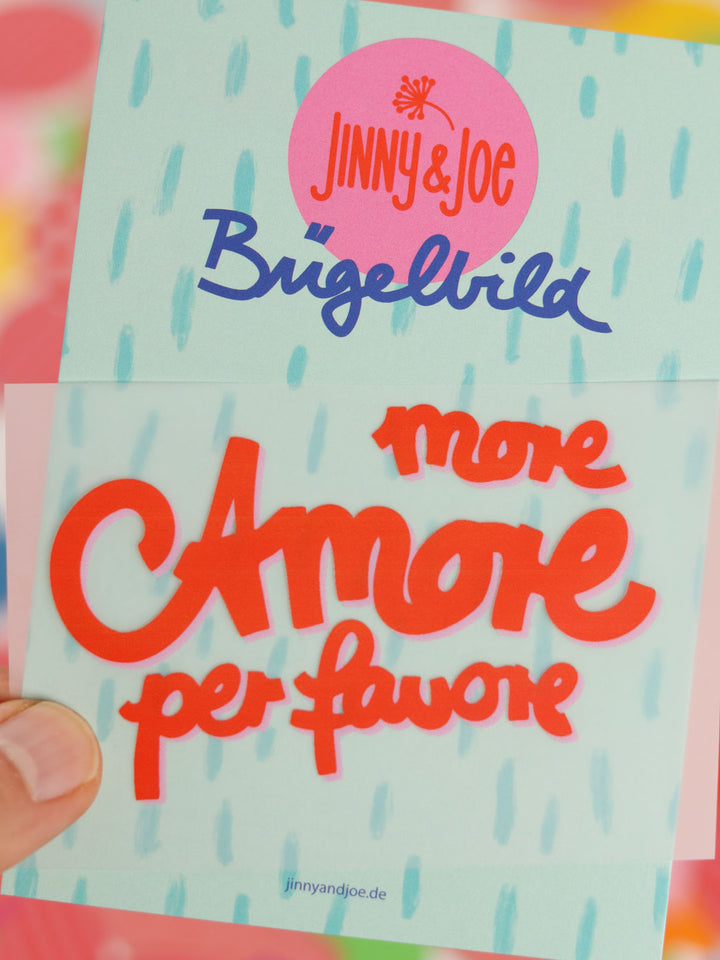 JINNY & JOE
Bügelbild
more
Amore
per favore
jinnyandjoe.de